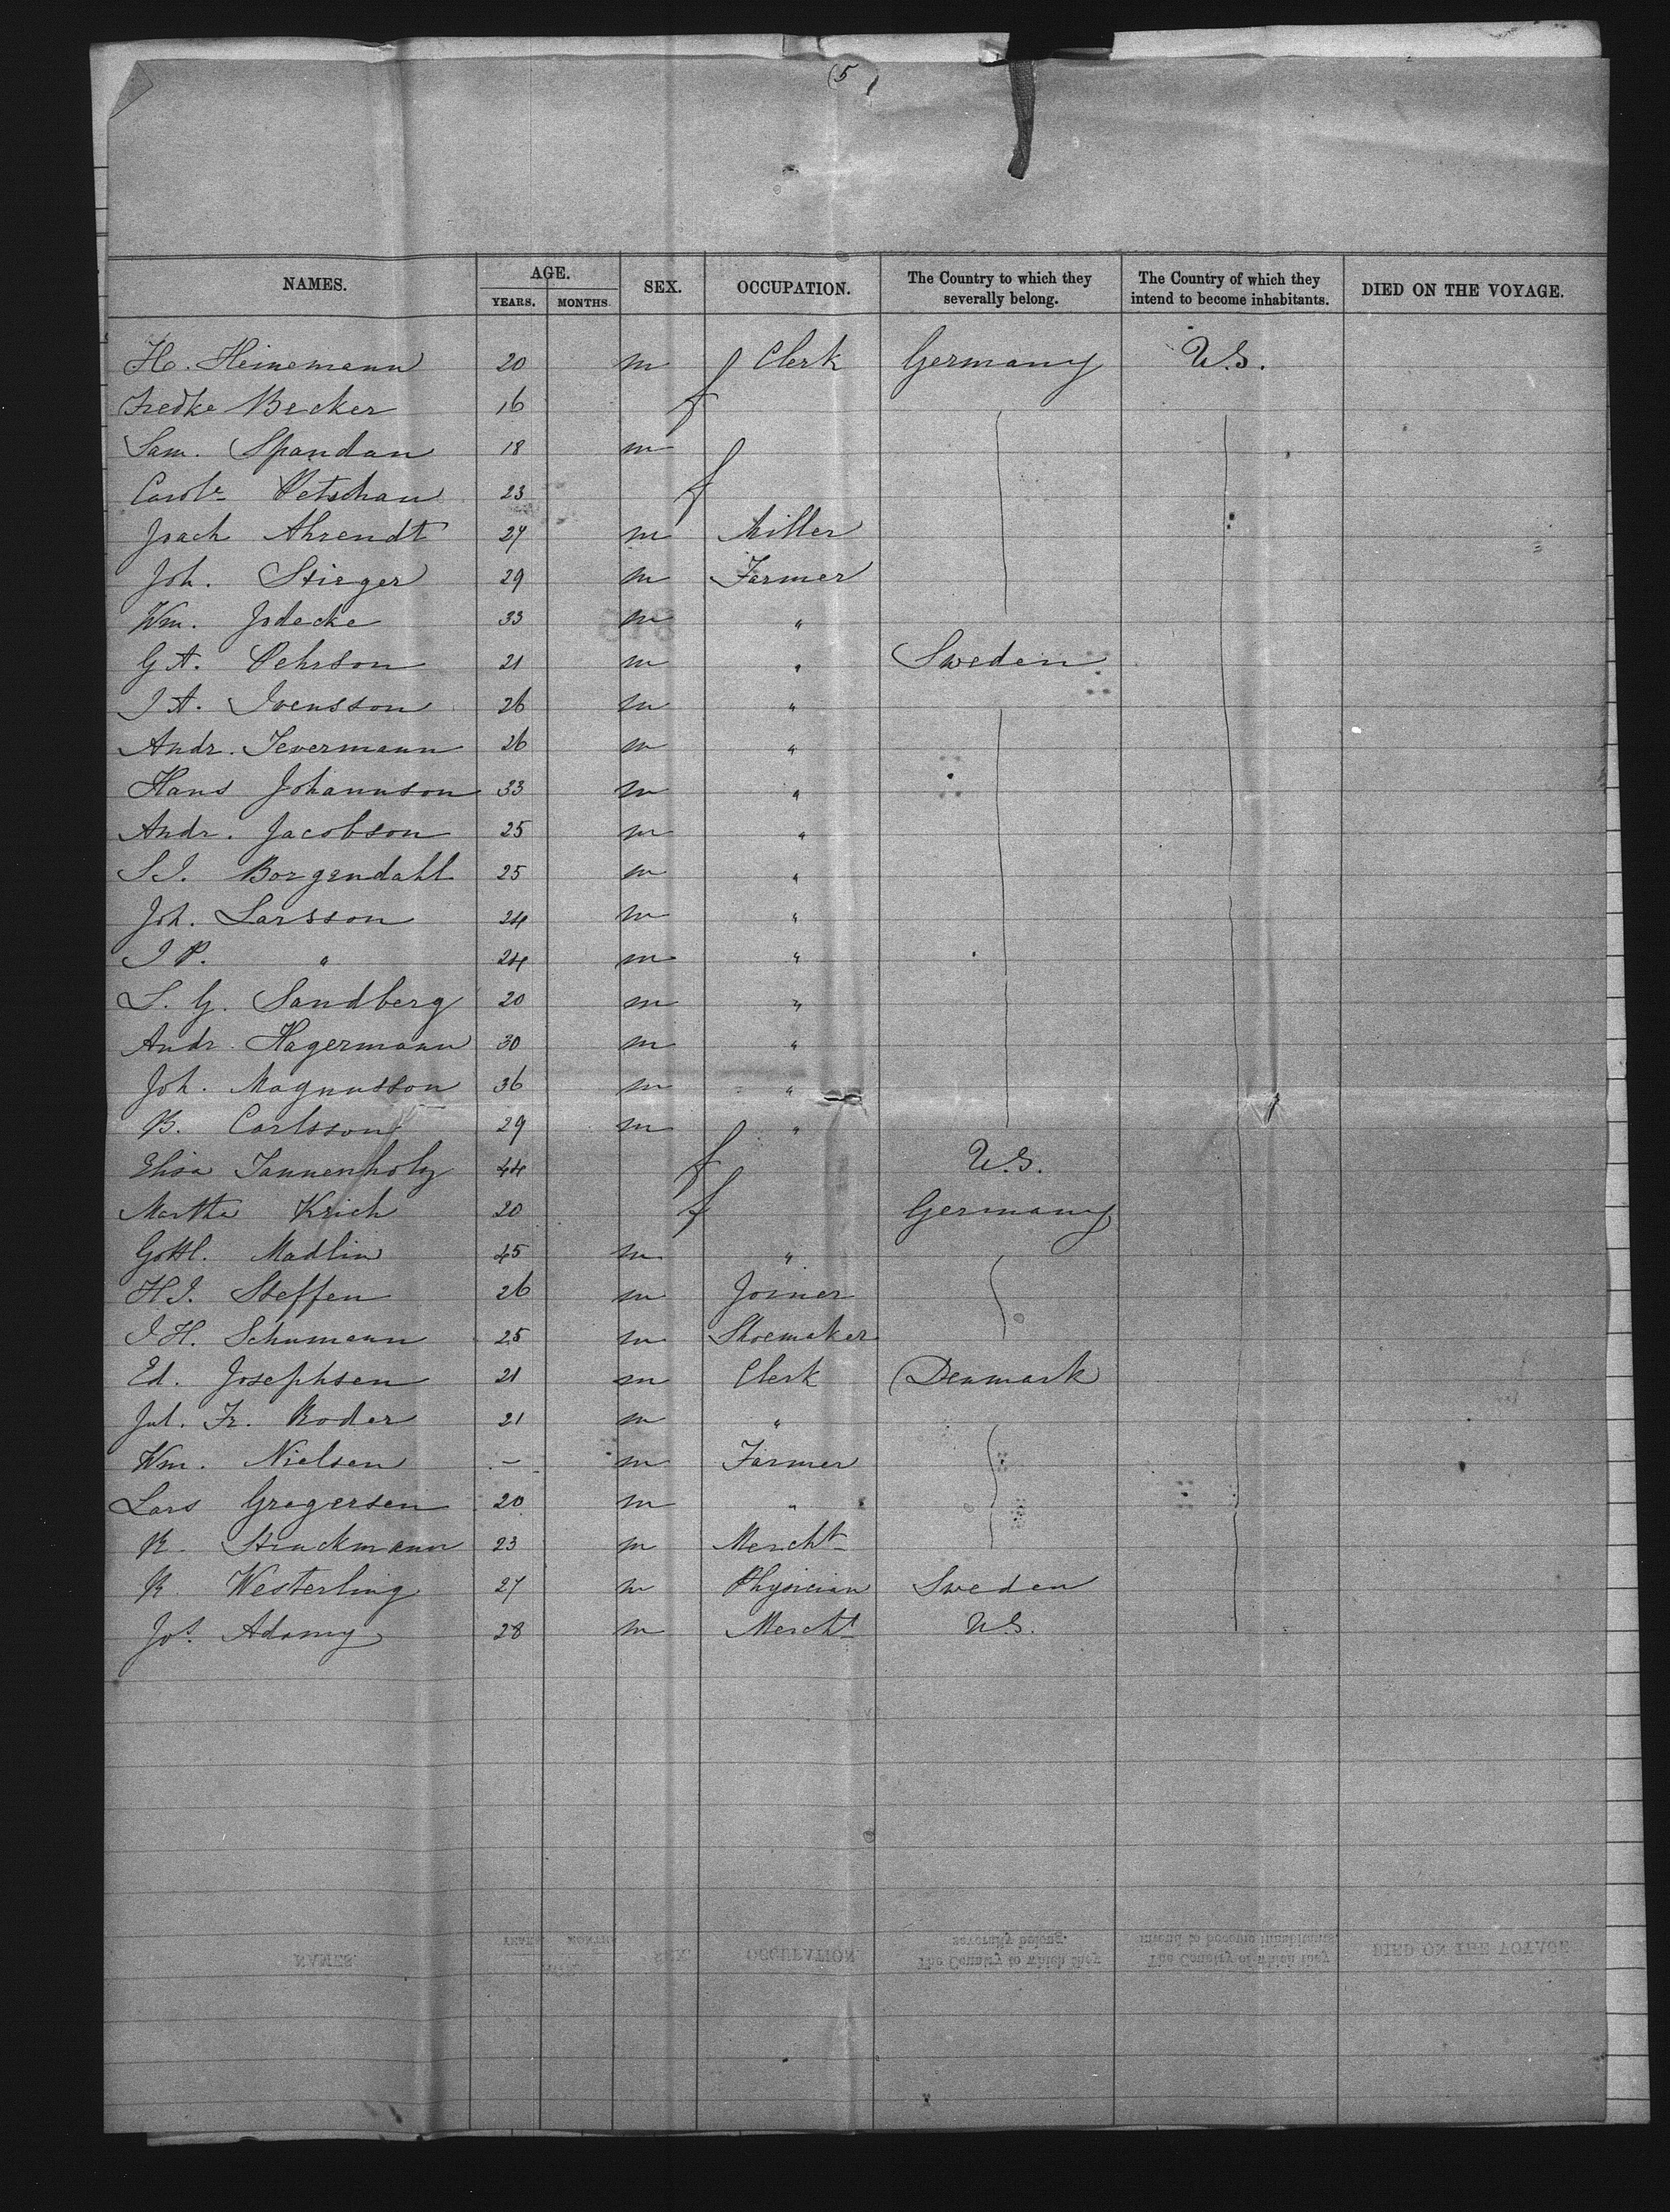 (5)
NAMES. AGE. YEARS. MONTHS. SEX. OCCUPATION. The Country to which they severally belong. The Country of which they intend to become inhabitants. DIED ON THE VOYAGE.
H. Heinemann 20 m Clerk Germany U.S.
Fredke Becker 16 f
Sam. Spandau 18 m
Carole Petschau 23 f
Joach Ahrendt 27 m Miller
Joh. Stieger 29 m Farmer
Wm. Jodecke 33 m "
G A. Pehrson 21 m " Sweden
J A. Svensson 26 m "
Andr. Severmann 26 m "
Hans Johannson 33 m "
Andr. Jacobson 25 m "
S J. Borgendahl 25 m "
Joh. Larsson 24 m "
J P. " 24 m "
S. G. Sandberg 20 m "
Andr. Hagermann 30 m "
Joh. Magnusson 36 m "
B. Carlsson 29 m "
Elisa Tannenholz 44 f U.S.
Martha Krich 20 f Germany
Gottl. Madlin 45 m "
H J. Steffen 26 m Joiner
J H. Schumann 25 m Shoemaker
Ed. Josephsen 21 m Clerk Denmark
Jul. Fr. Roder 21 m "
Wm. Nielsen - m Farmer
Lars Gregersen 20 m "
R. Struckmann 23 m Mercht
R. Westerling 27 m Physician Sweden
Jos. Adamy 28 m Mercht U.S.